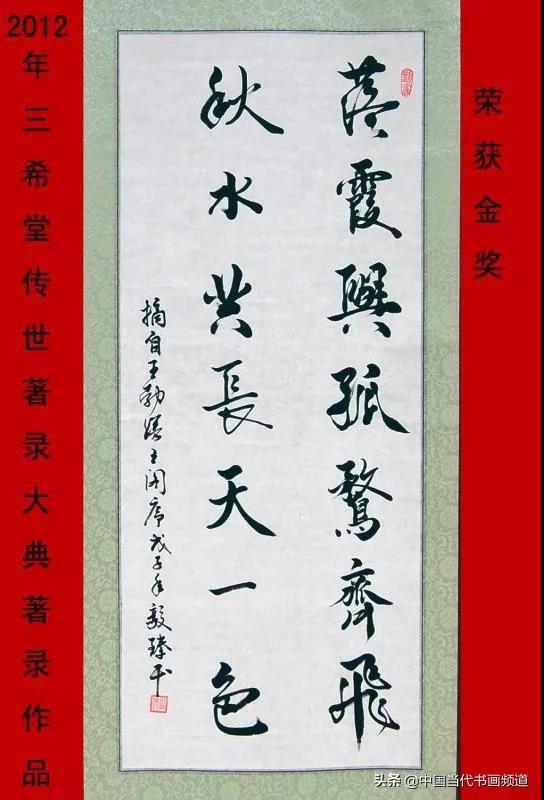 2012年三希堂传世著录大典著录作品
荣获金奖
落霞與孤鶩齊飛
秋水共長天一色
摘自王勃滕王阁序戊子年毅臻书
头条 @中国当代书画频道